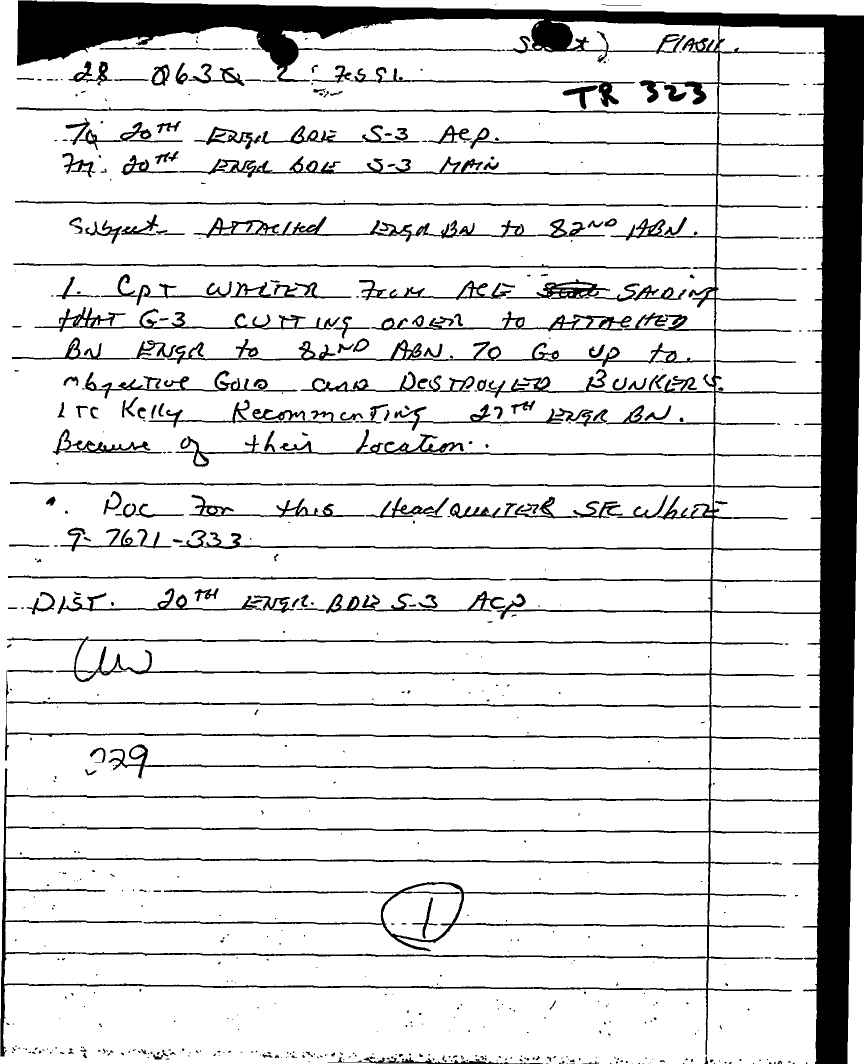 FLASH.
28 0630 Z Feb 91.
TR 323
To 20TH ENGR BDE S-3 ACP.
FM: 20TH ENGR BDE S-3 MAIN
Subject- ATTACHed ENGR BN to 82ND ABN.
1. CPT WALTER From ACE SAIDING
tHAT G-3 CUTTING ORDER to ATTACHED
BN ENGR to 82ND ABN. TO GO UP to.
objective GOLD and DESTROYED BUNKER'S.
LTC Kelly RecommenTING 27TH ENGR BN.
Because of their Location.
POC For this HeadquarTER SFC WhITE
9-7671-333
DIST. 20TH ENGR. BDE S-3 ACP
229
1